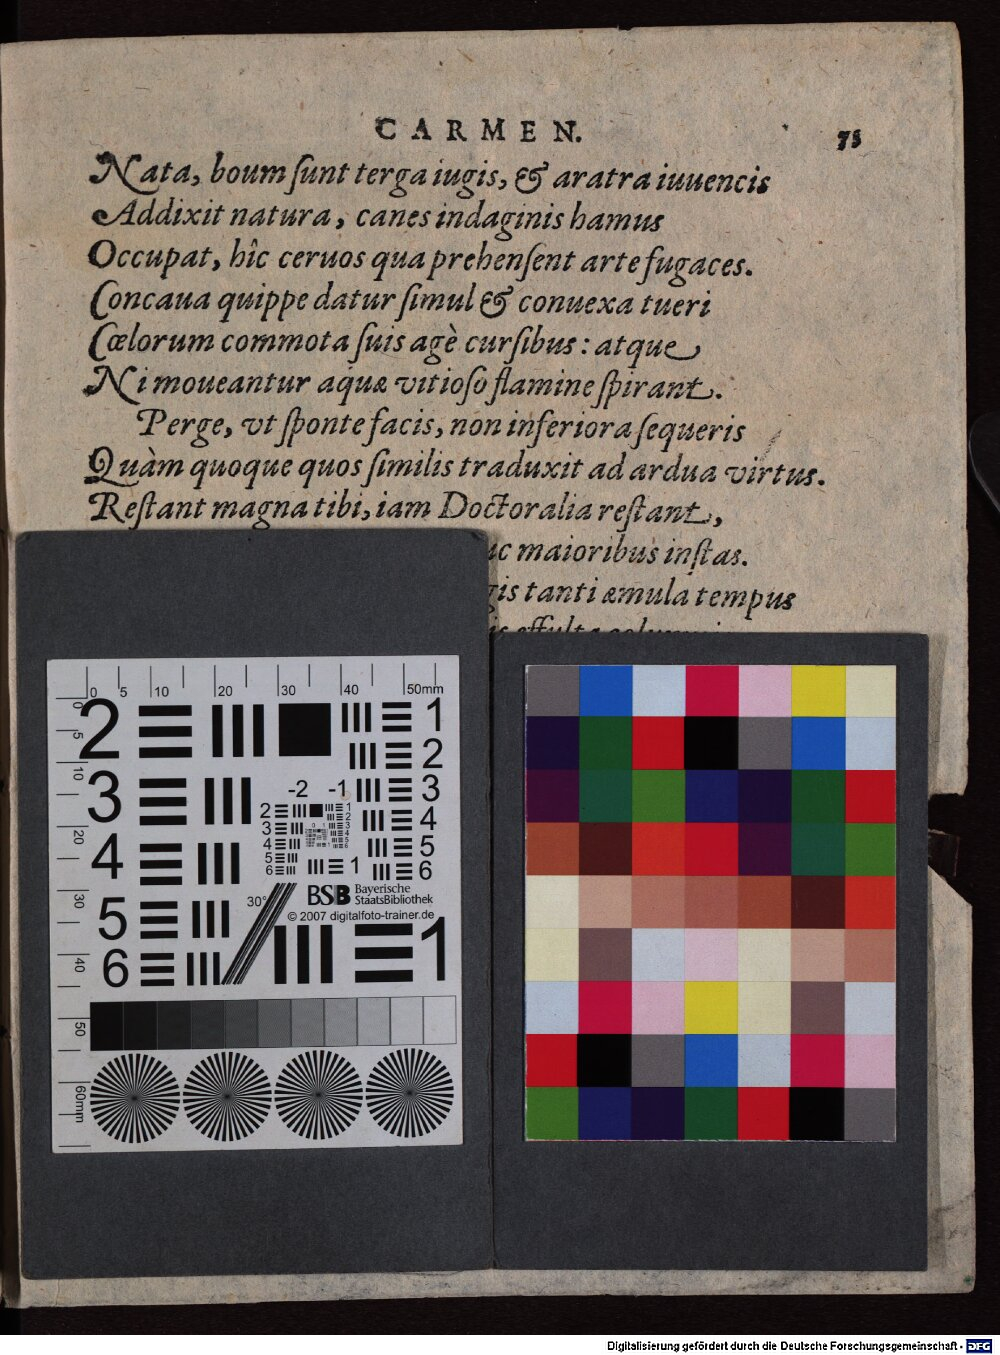 CARMEN. 73
Nata, boum ſunt terga iugis, & aratra iuuencis
Addixit natura, canes indaginis hamus
Occupat, hîc ceruos qua prehenſent arte fugaces.
Concaua quippe datur ſimul & conuexa tueri
Cœlorum commota ſuis agè curſibus: atque
Ni moueantur aquæ vitioſo flamine ſpirant.
Perge, vt ſponte facis, non inferiora ſequeris
Quàm quoque quos ſimilis traduxit ad ardua virtus.
Reſtant magna tibi, iam Doctoralia reſtant,
uc maioribus inſtas.
gis tanti æmula tempus
0 5 10 20 30 40 50mm
0 5 10 20 30 40 50 60mm
2 1
2
3 -2 -1 3
4 4
5 5
6 6
2 1
3 2
4 3
5 4
6 5
6
1
30°
BSB Bayerische
StaatsBibliothek
© 2007 digitalfoto-trainer.de
1
Digitalisierung gefördert durch die Deutsche Forschungsgemeinschaft - DFG